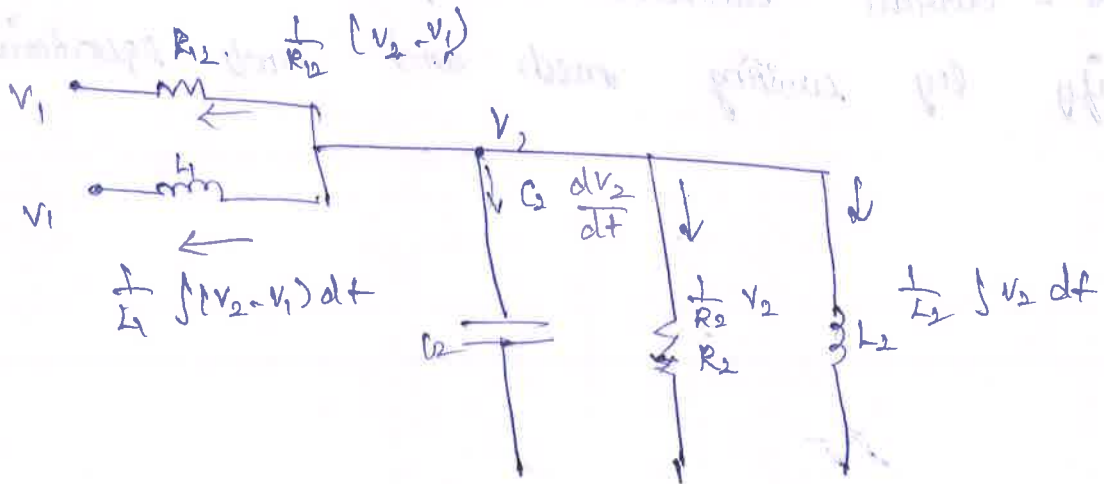 R12. 1/R12 (V2 - V1)
V1
L1
V1
1/L1 ∫(V2 - V1) dt
V2
C2 dV2/dt
C2
1/R2 V2
R2
1/L2 ∫ V2 dt
L2